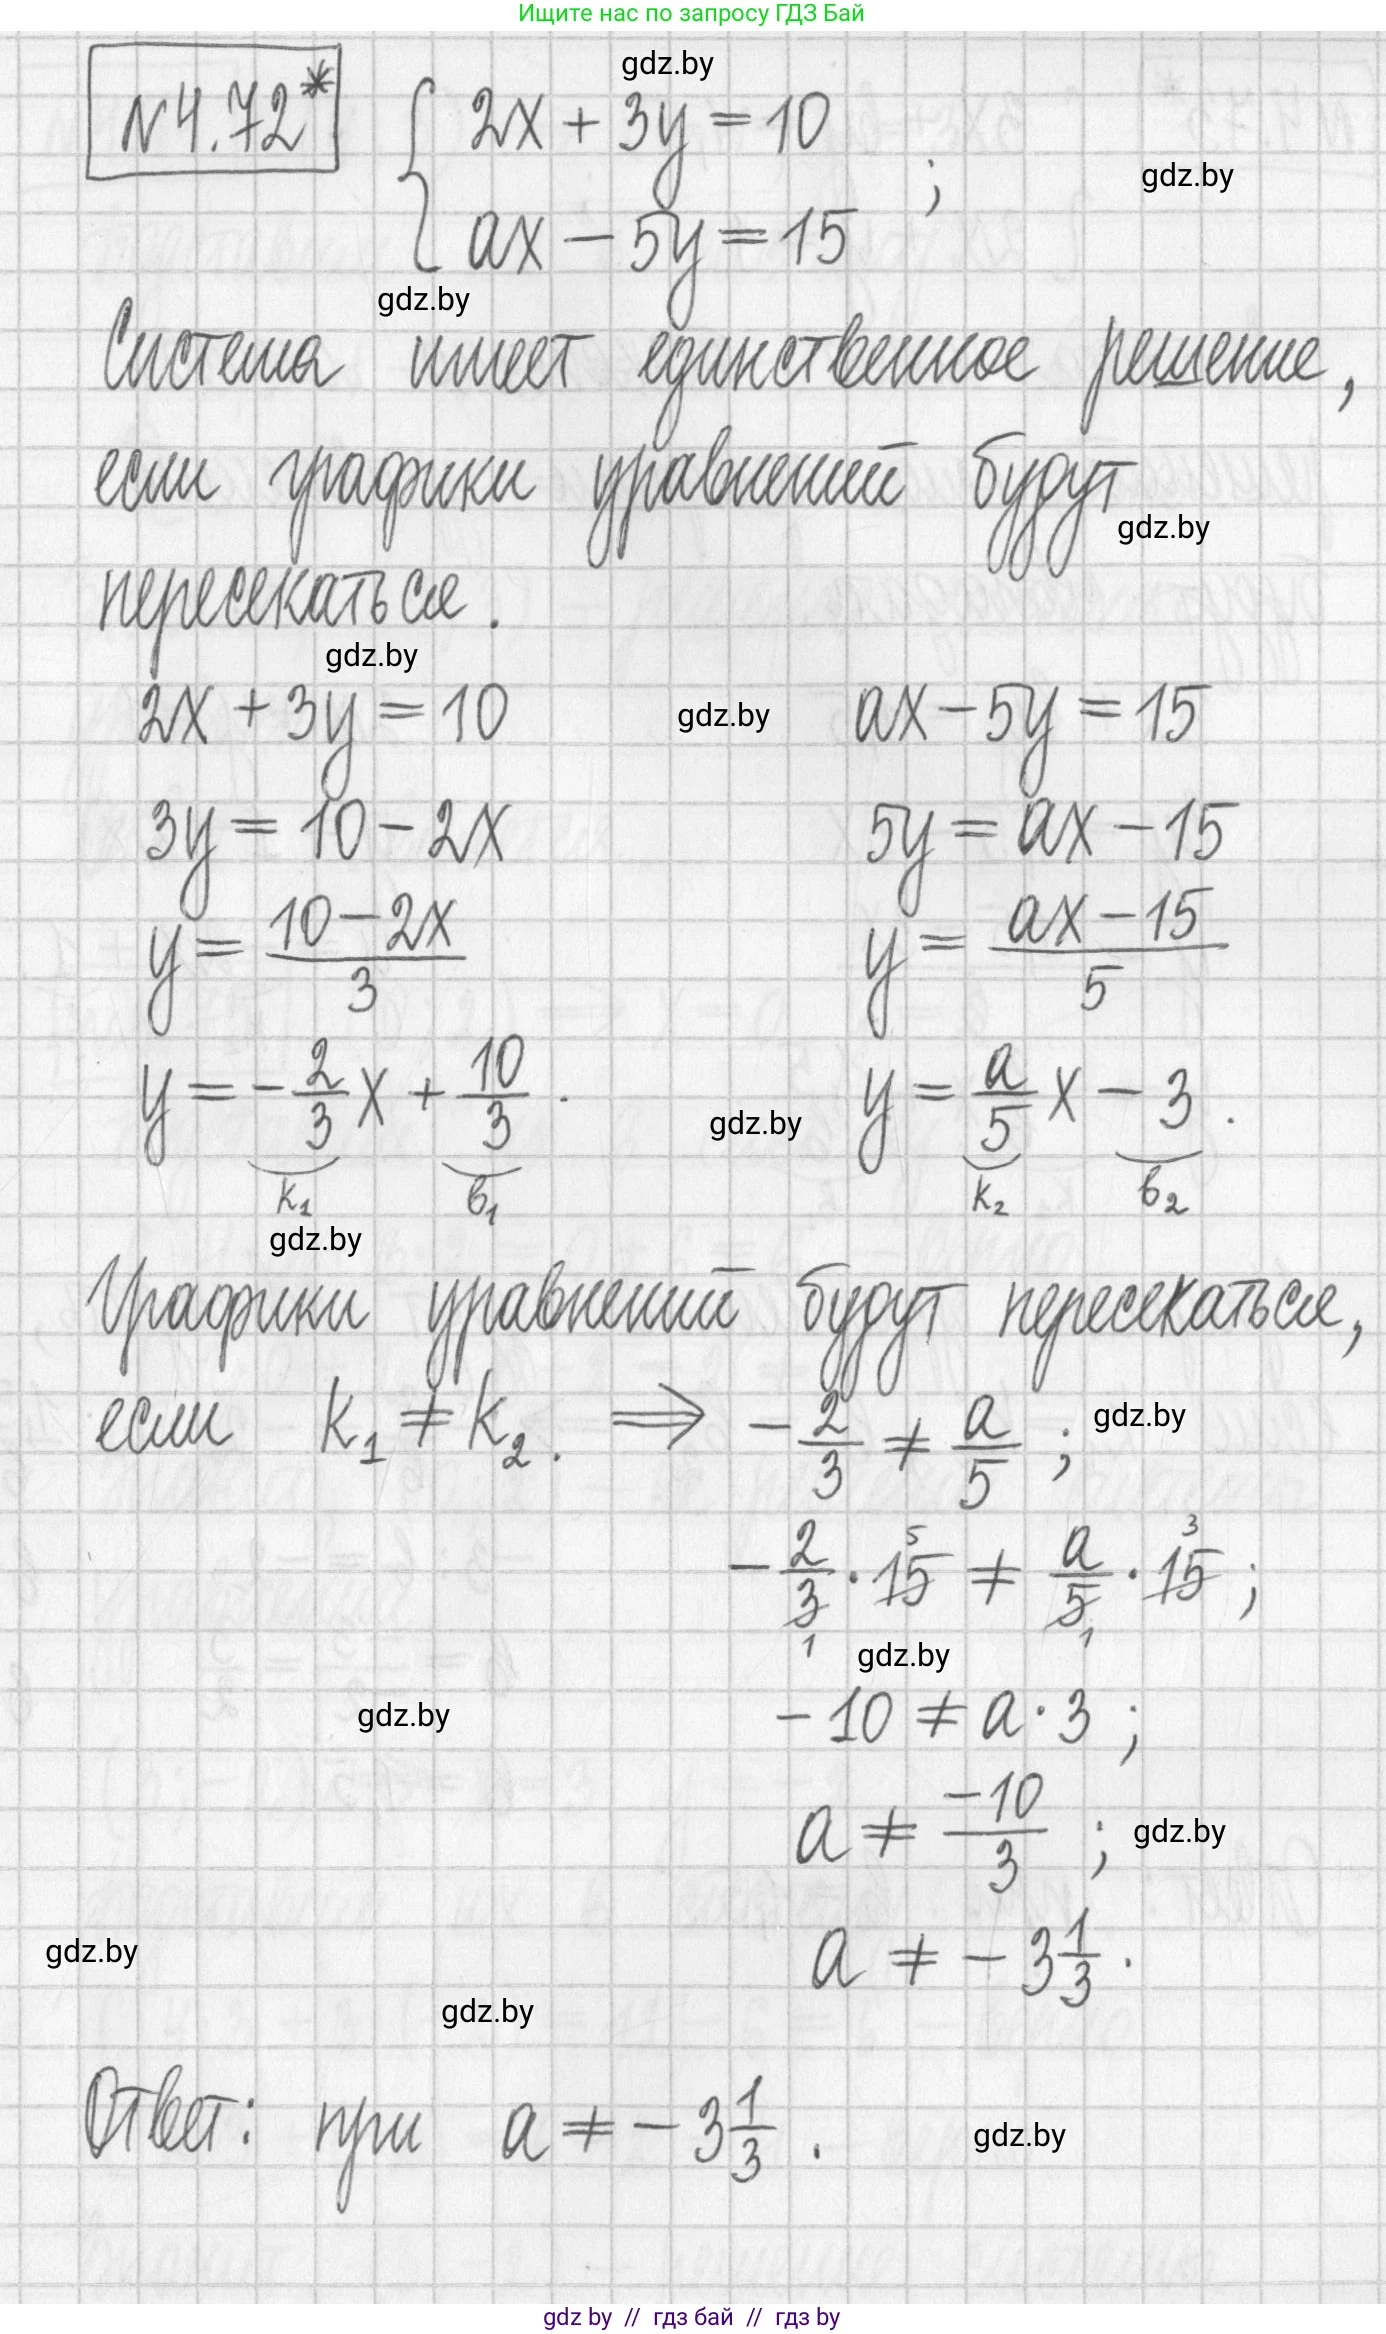 Ищите нас по запросу ГДЗ Бай
N4.72*
gdz.by
{ 2x + 3y = 10
ax − 5y = 15 ;
gdz.by
gdz.by
Система имеет единственное решение,
если графики уравнений будут
gdz.by
пересекаться.
gdz.by
2x + 3y = 10 gdz.by ax − 5y = 15
3y = 10 − 2x 5y = ax − 15
y = (10 − 2x)/3 y = (ax − 15)/5
y = −2/3 x + 10/3 . gdz.by y = a/5 x − 3 .
k₁ b₁ k₂ b₂
gdz.by
Графики уравнений будут пересекаться,
если k₁ ≠ k₂. ⇒ −2/3 ≠ a/5 ; gdz.by
−2/3 · 15 ≠ a/5 · 15 ;
1 5 1 3
gdz.by
gdz.by −10 ≠ a · 3 ;
a ≠ −10/3 ; gdz.by
gdz.by a ≠ −3 1/3 .
gdz.by
Ответ: при a ≠ −3 1/3 . gdz.by
gdz by // гдз бай // гдз by